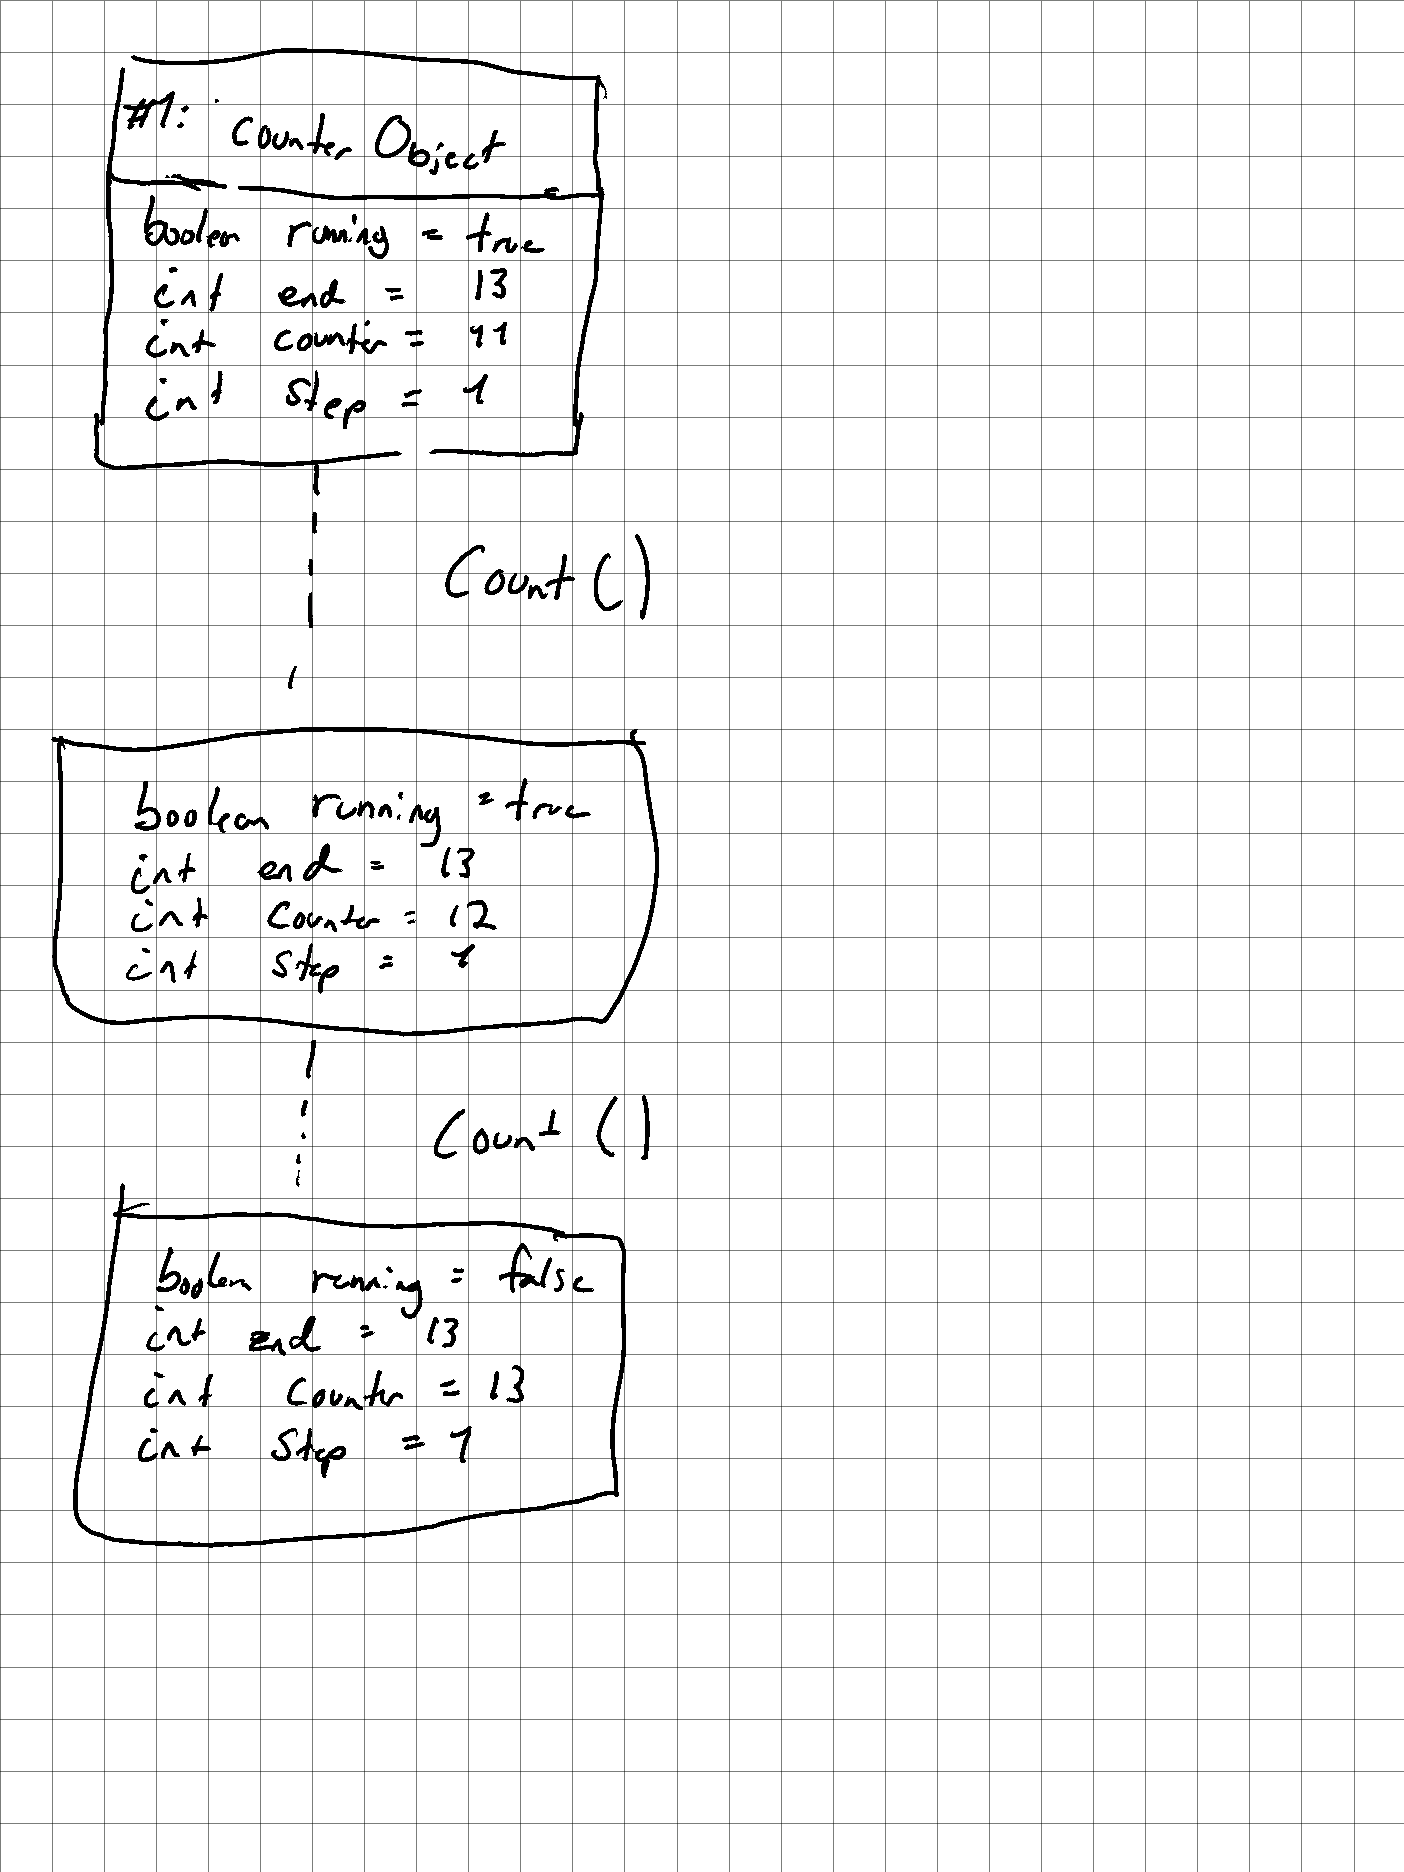 #1: Counter Object
boolean running = true
int end = 13
int counter = 11
int step = 1
Count ()
boolean running = true
int end = 13
int Counter = 12
int step = 1
Count ()
boolean running = false
int end = 13
int Counter = 13
int Step = 1